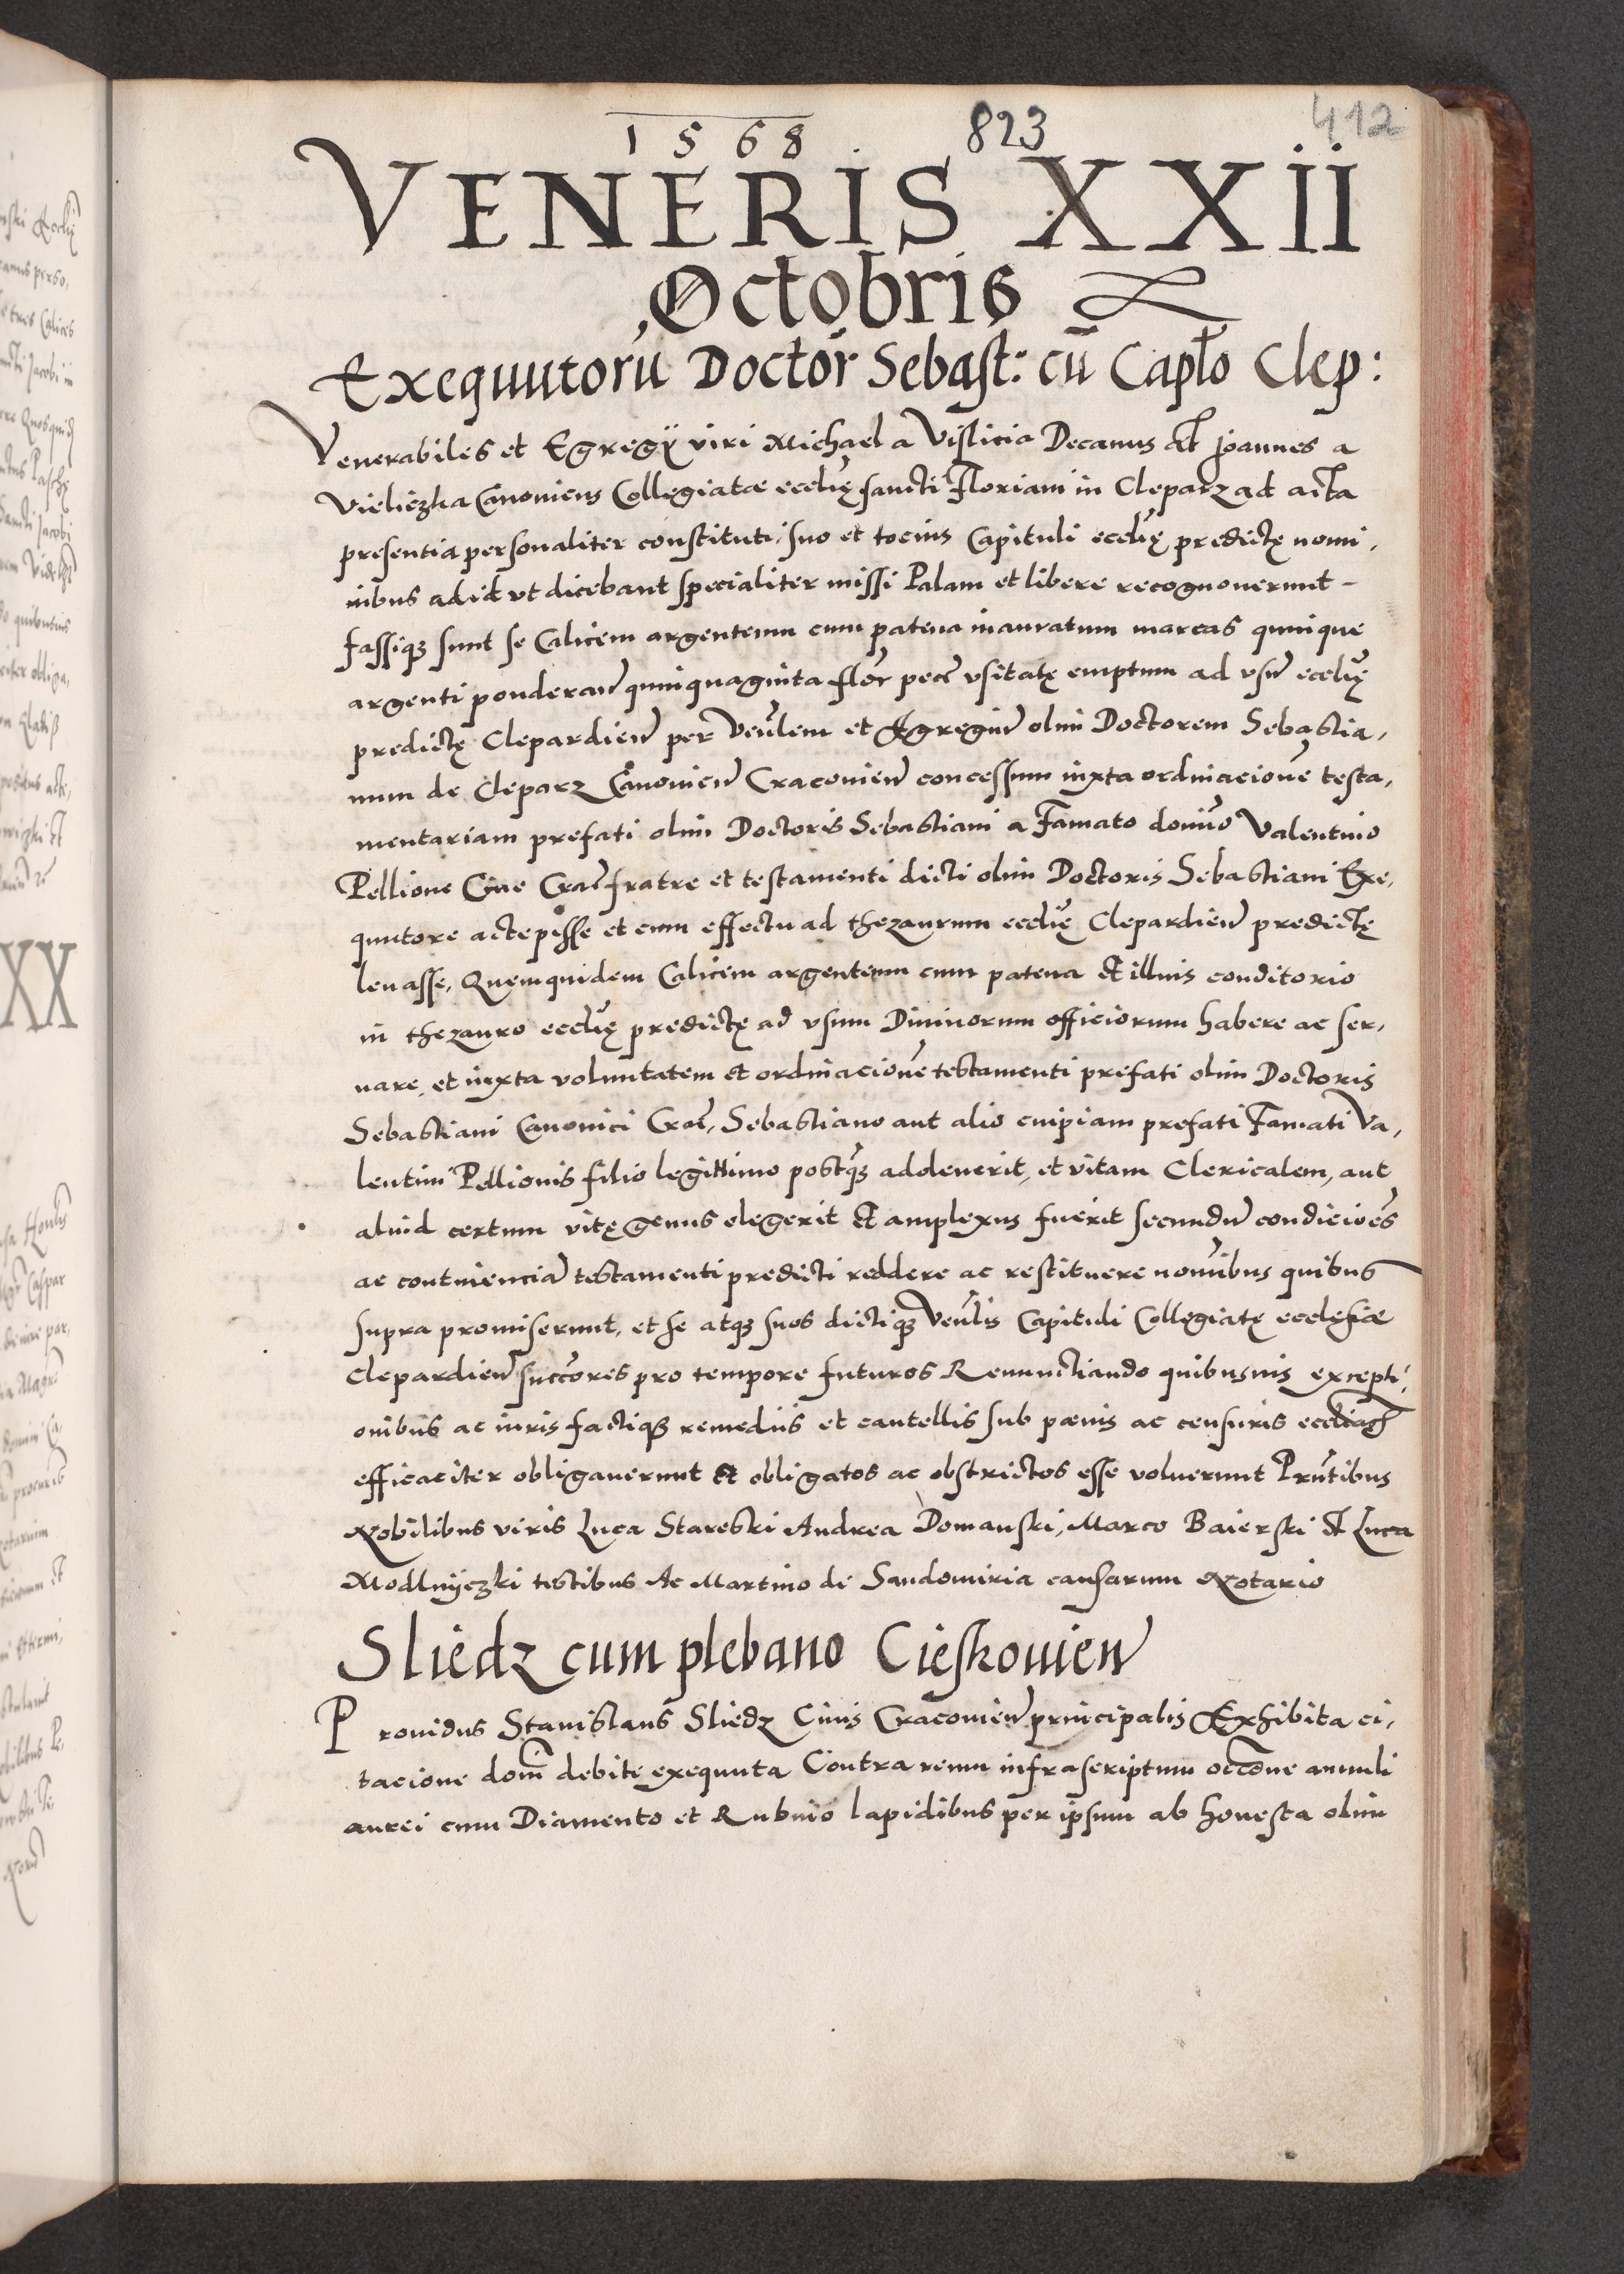 1568 823 412
VENERIS XXII
Octobris
Exequutorū Doctor Sebast: cū Caplo Clep:
Venerabiles et Egregij viri Michael a Vislicia Decanus et Joannes a
Vieliezka Canonicus Collegiatae ecclię sancti Floriani in Cleparz ad acta
presentia personaliter constituti, suo et tocius Capituli ecclię predictę nomi,
nibus ad id vt dicebant specialiter missi Palam et libere recognoverunt –
fassiqz sunt se Calicem argenteum cum patena inauratum marcas quinque
argenti ponderan quinquaginta flor pecē vsitatę emptum ad vsū ecclię
predictę Clepardien per Venlem et Egregiū olim Doctorem Sebastia,
num de Cleparz Canonicū Cracovien concessum iuxta ordinacionē testa,
mentariam prefati olim Doctoris Sebastiani a Famato domīo Valentino
Pellione Ciue Crac fratre et testamenti dicti olim Doctoris Sebastiani Exe,
quutore accepisse et cum effectu ad thezaurum ecclię Clepardien predictę
leuasse, Quemquidem Calicem argenteum cum patena et illius conditorio
in thezauro ecclię predictę ad vsum Diuinorum officiorum habere ac ser,
uare, et iuxta voluntatem et ordinacionē testamenti prefati olim Doctoris
Sebastiani Canonici Crac, Sebastiano aut alio cuipiam prefati Famati Va,
lentini Pellionis filio legittimo postqz adoleuerit, et vitam Clericalem, aut
aliud certum vitę genus elegerit et amplexus fuerit secundū condicioēs
ac continenciā testamenti predicti reddere ac restituere nomībus quibus
supra promiserunt, et se atqz suos dictiqz Venlis Capituli Collegiatę ecclęsiae
Clepardien succores pro tempore futuros Renunctiando quibusuis excepti,
onibus ac iuris factiqz remediis et cautellis sub paenis ac censuris
efficaciter obligauerunt et obligatos ac obstrictos esse voluerunt Prntibus
Nobilibus viris Luca Stareski Andrea Domanski, Marco Baierski et Luca
Modlnijczki testibus Ac Martino de Sandomiria causarum Notario
Sliedz cum plebano Cieskouien
Prouidus Stanislaus Sliedz Ciuis Cracouien principalis Exhibita ci,
tacione domī debite exequuta Contra reum infrascriptum occōne annuli
aurei cum Diamento et Rubino lapidibus per ipsum ab honesta olim